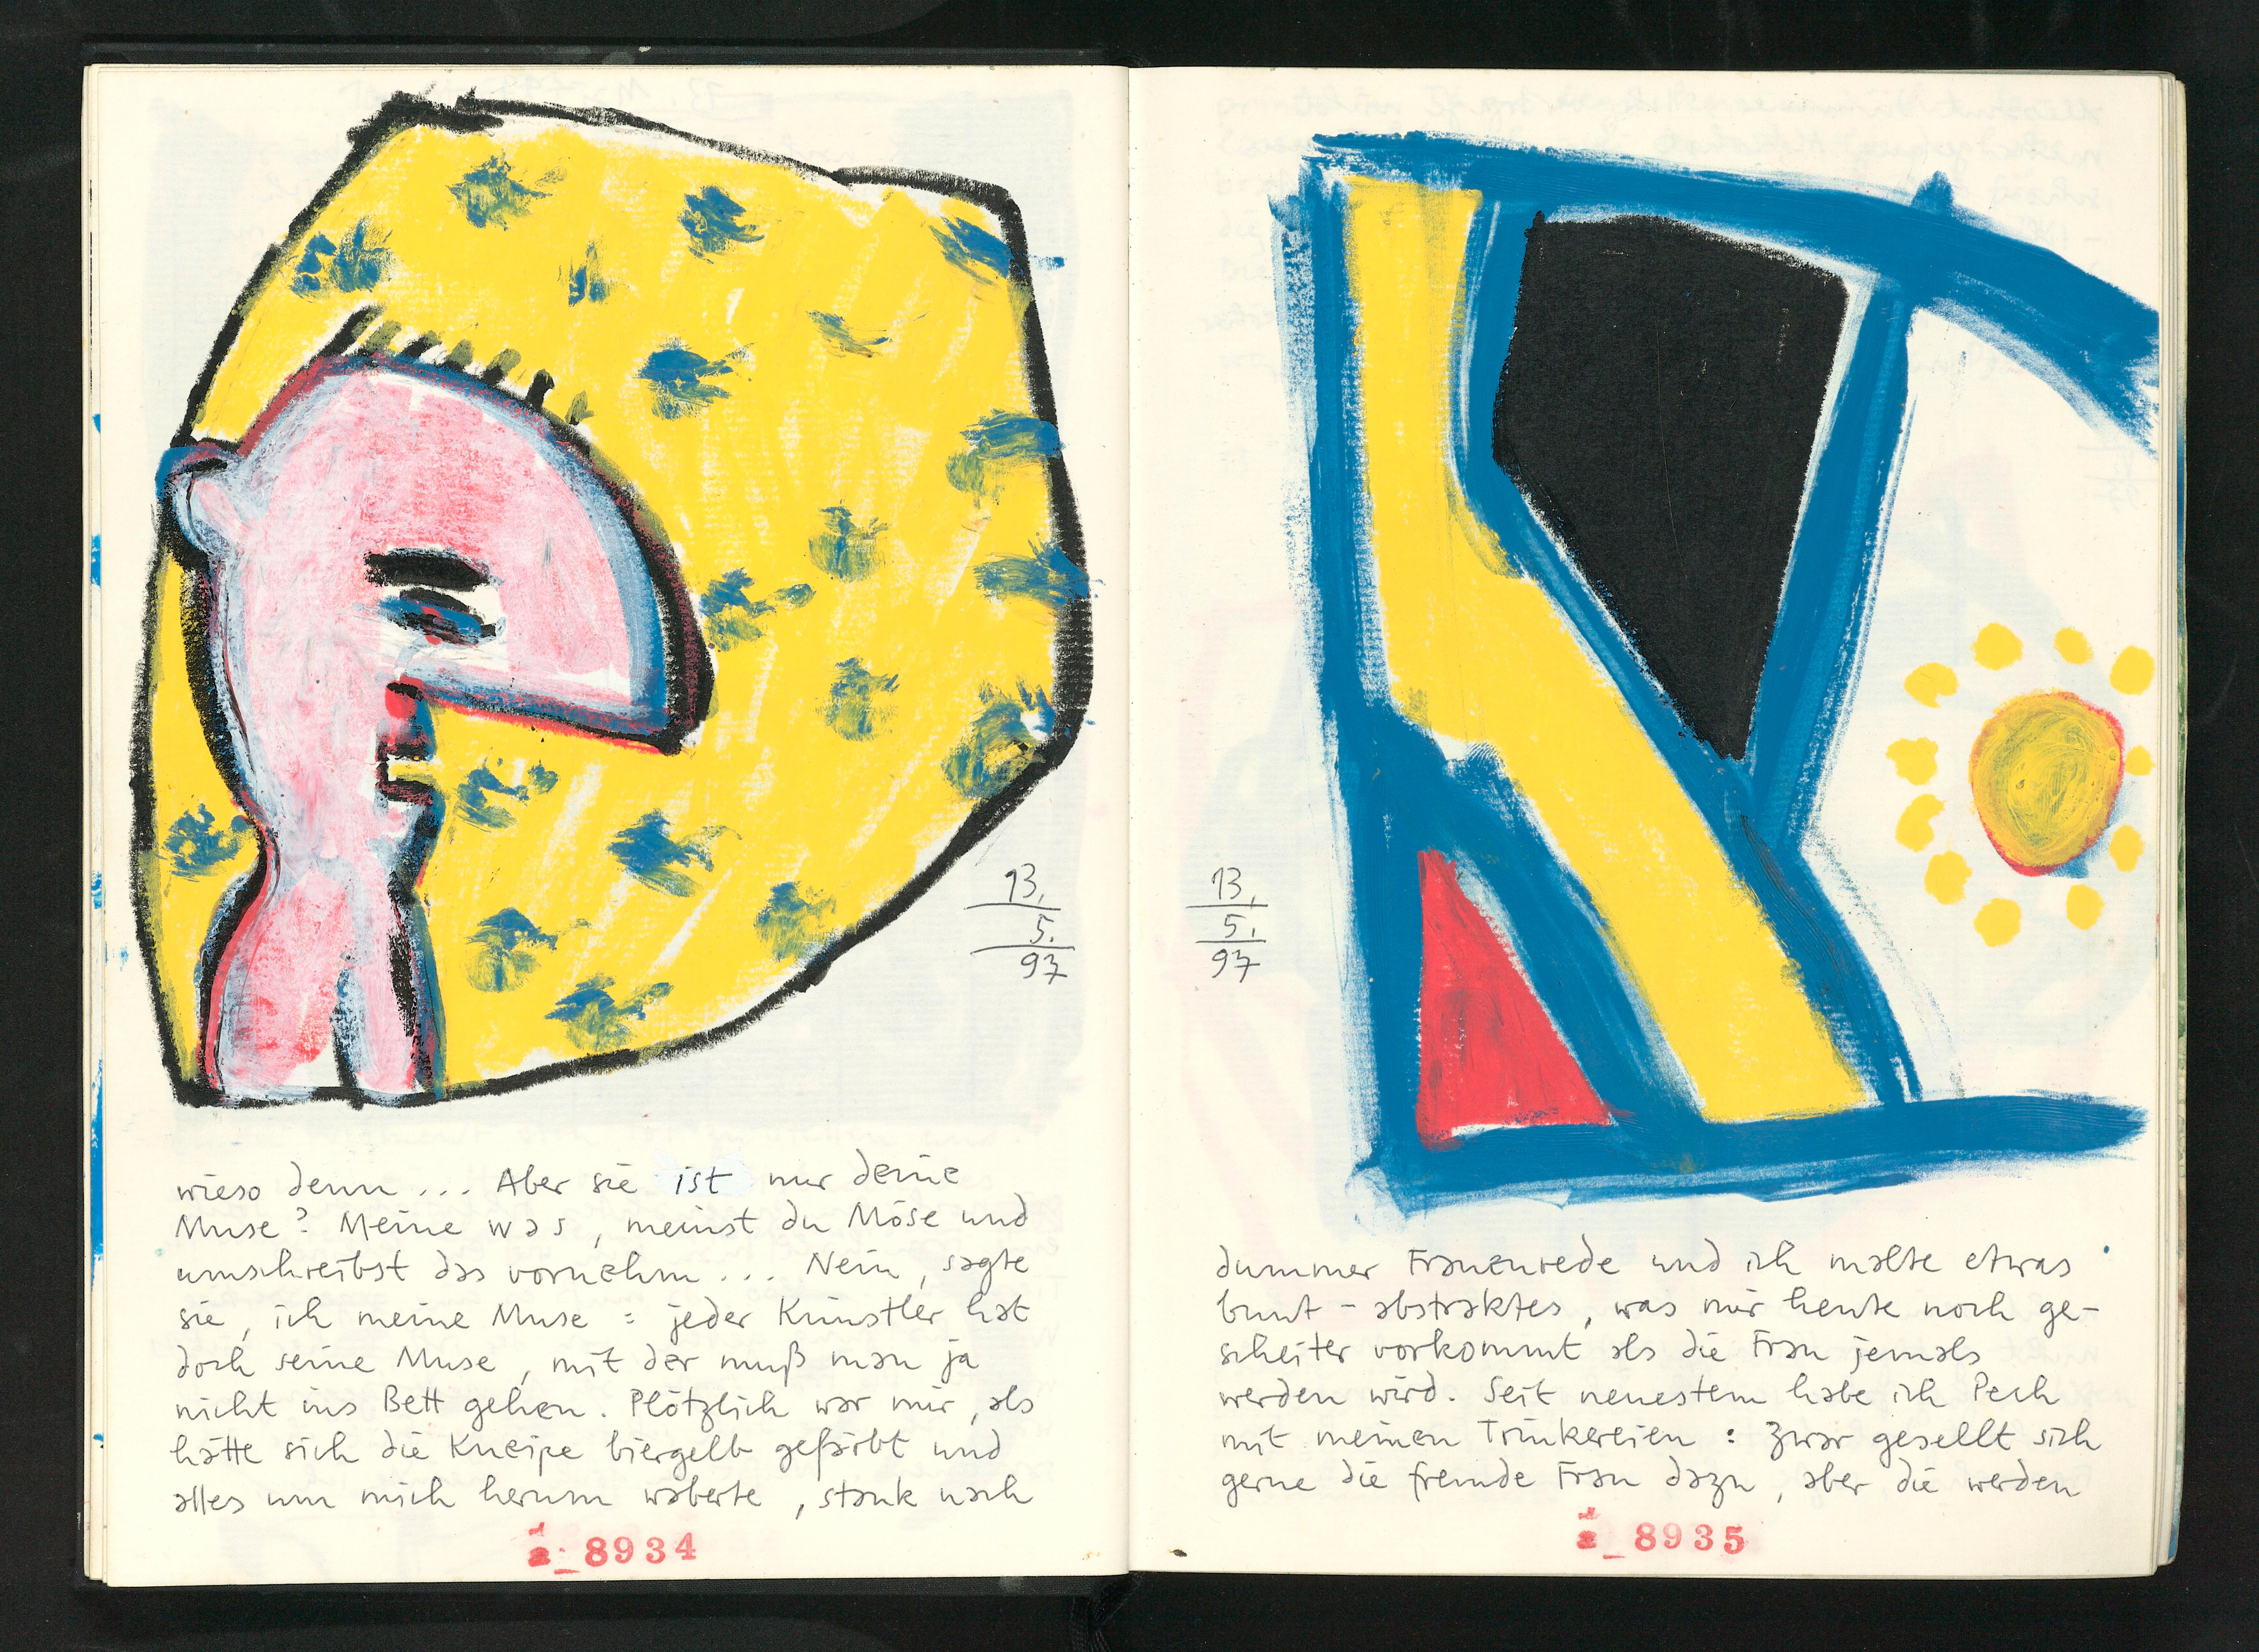 13.
5.
97
wieso denn ... Aber sie ist nur deine
Muse? Meine was, meinst du Möse und
umschreibst das vornehm ... Nein, sagte
sie, ich meine Muse: jeder Künstler hat
doch seine Muse, mit der muß man ja
nicht ins Bett gehen. Plötzlich war mir, als
hätte sich die Kneipe biergelb gefärbt und
alles um mich herum waberte, stank nach
8934
13.
5.
97
dummer Frauenrede und ich malte etwas
bunt-abstraktes, was mir heute noch ge-
scheiter vorkommt als die Frau jemals
werden wird. Seit neuestem habe ich Pech
mit meinen Trinkereien: Zwar gesellt sich
gerne die fremde Frau dazu, aber die werden
8935